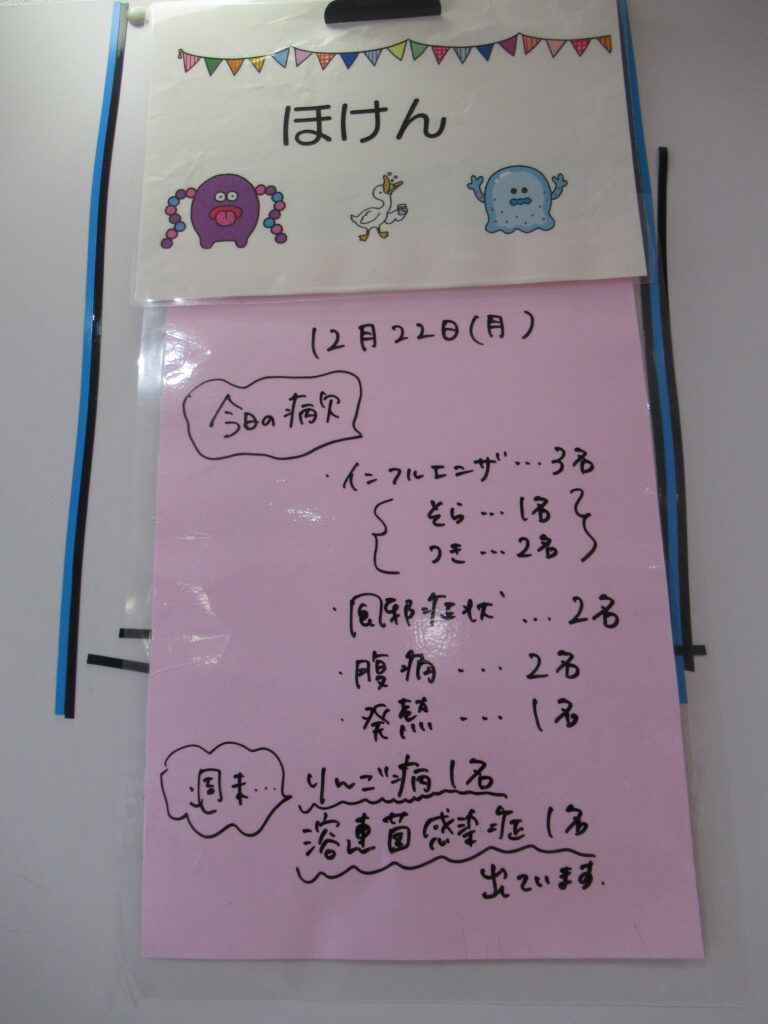 ほけん
12月22日(月)
今日の病欠
・インフルエンザ…3名
そら…1名
つき…2名
・風邪症状…2名
・腹痛…2名
・発熱…1名
週末…
りんご病1名
溶連菌感染症1名
出ています。